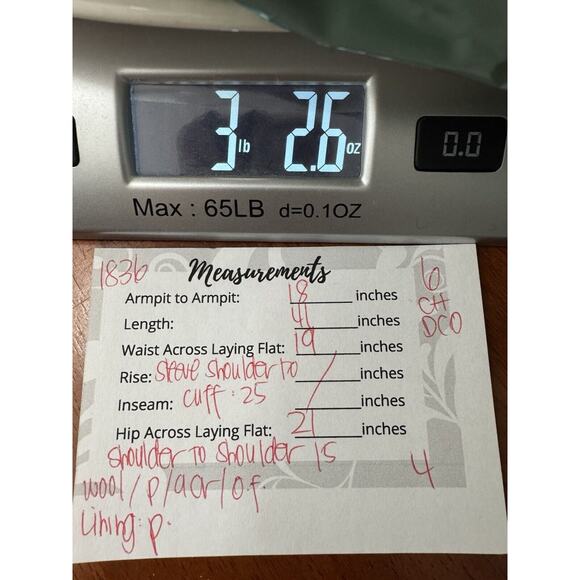 3 lb 2.6 oz
0.0
Max : 65LB d=0.1OZ
1836 Measurements 6
Armpit to Armpit: 18 inches CH
Length: 41 inches DCO
Waist Across Laying Flat: 19 inches
Rise: Sleeve shoulder to / inches
Inseam: cuff: 25 inches
Hip Across Laying Flat: 21 inches
shoulder to shoulder 15
4
wool/p/acr/of
Lining: p.